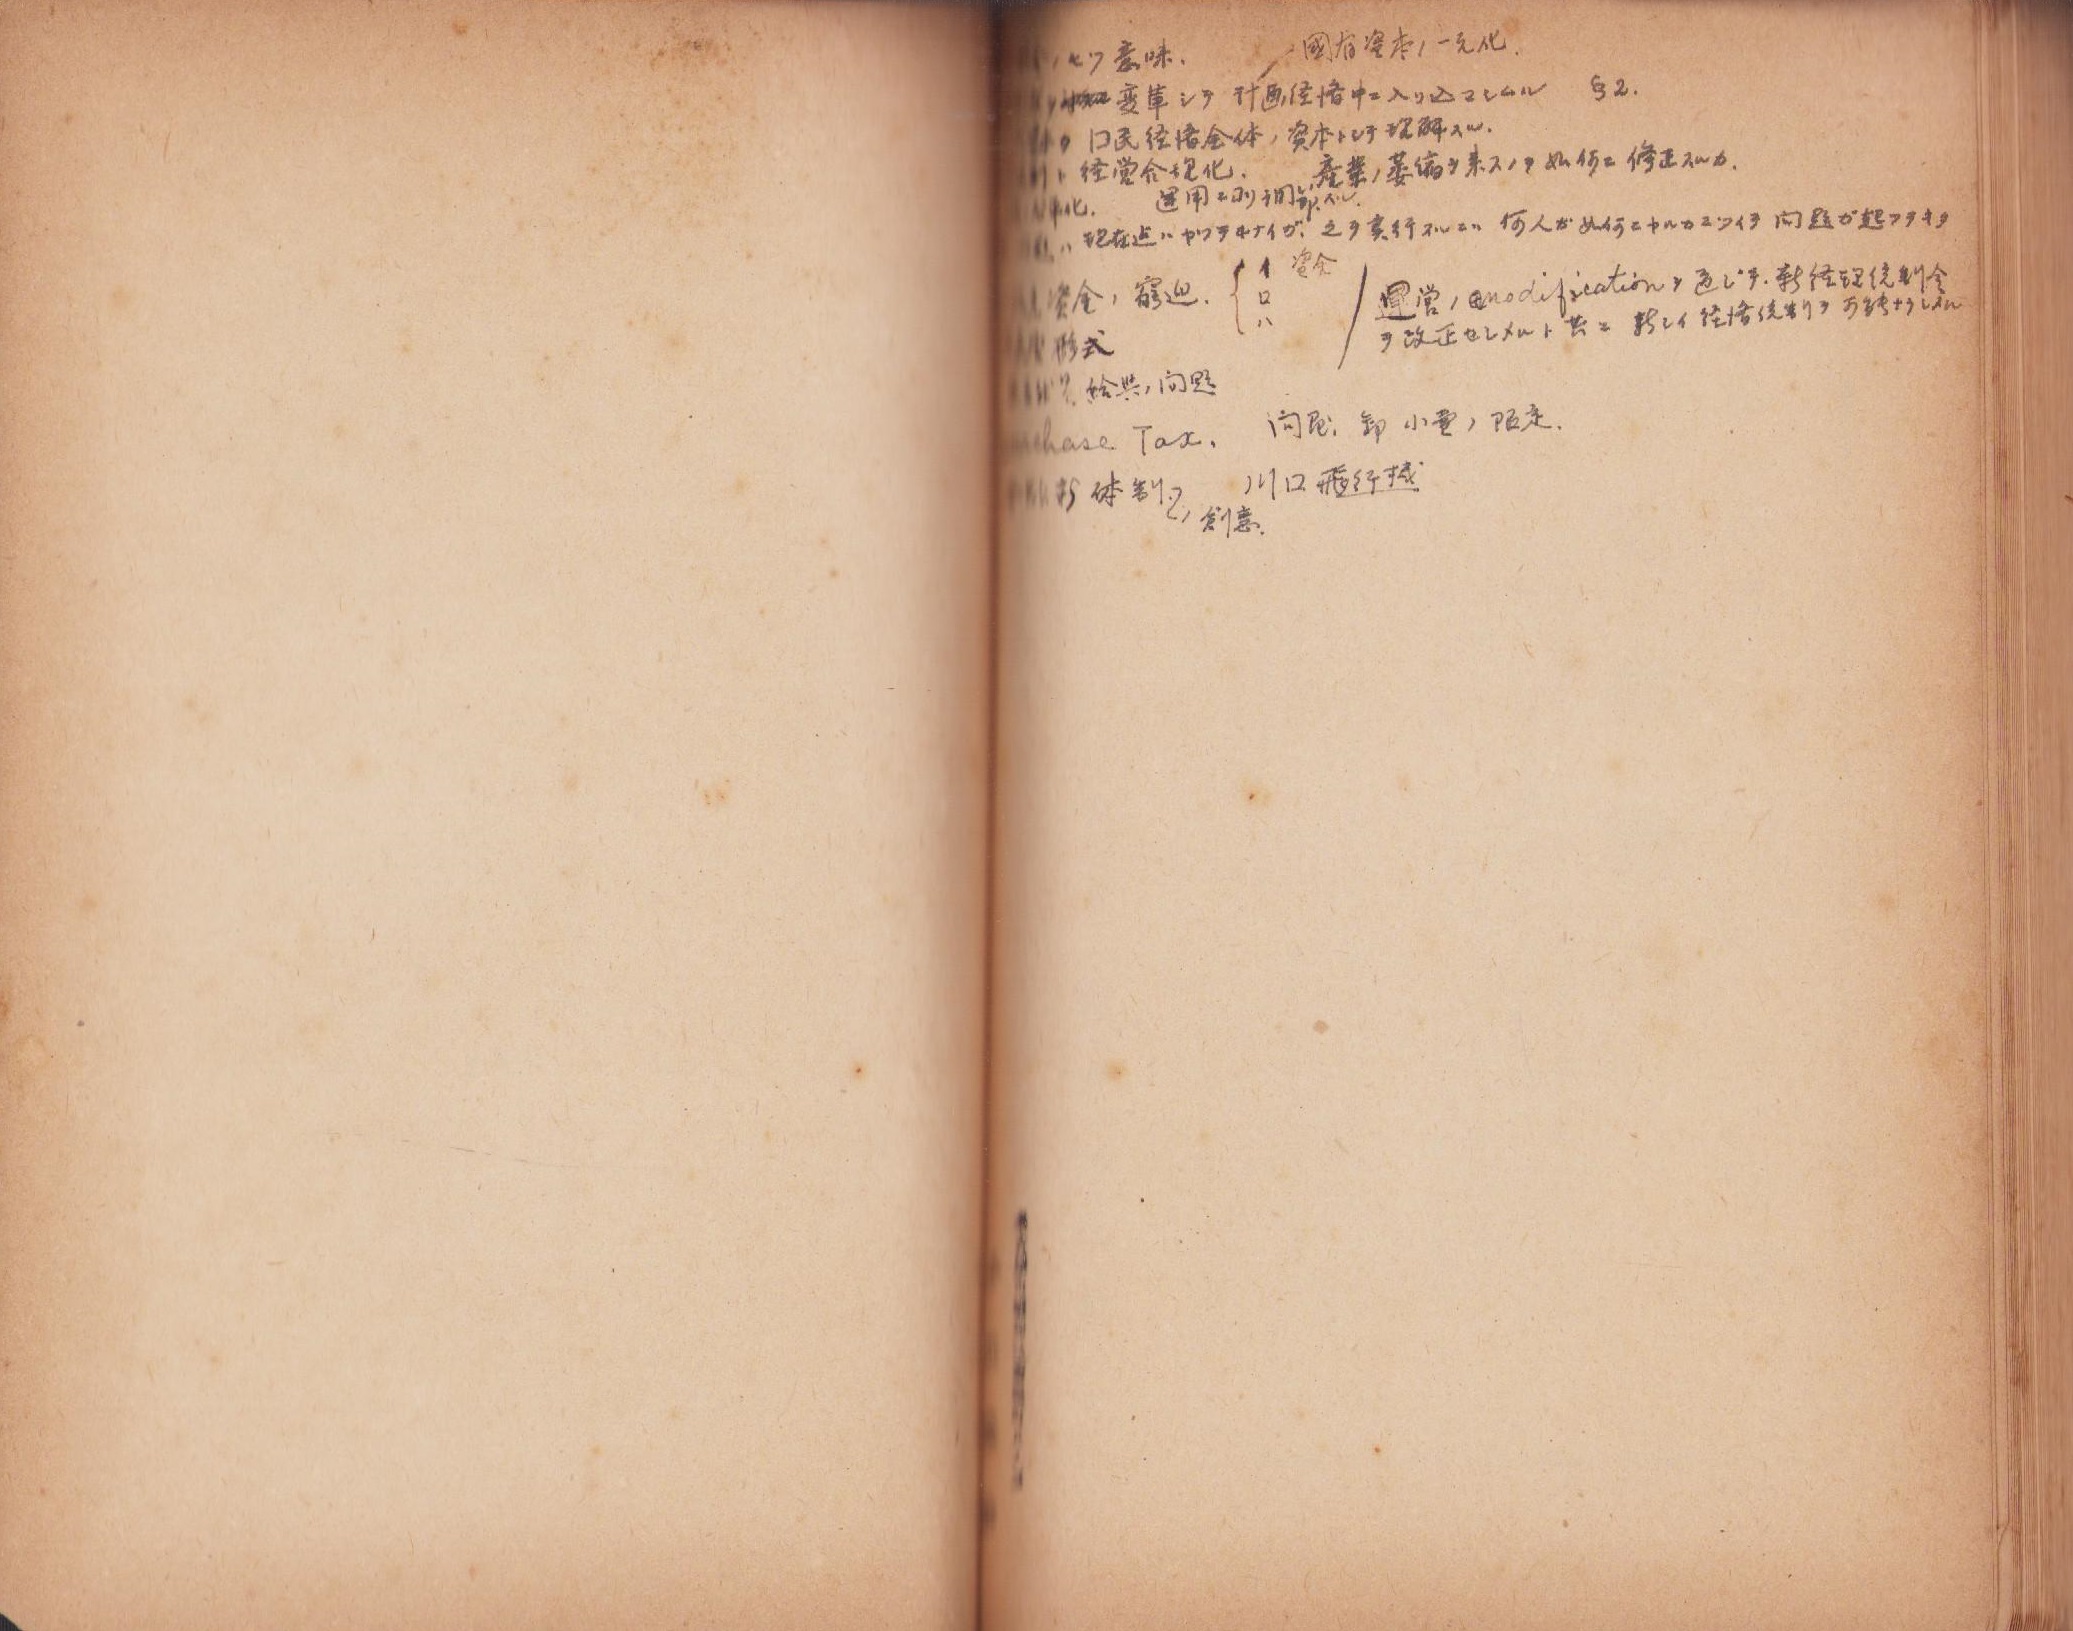 ノセツ意味.
國有資本ノ一元化.
変革シテ計画経済中ニ入リ込マシムル §2.
口民経済全体ノ資本トシテ理解スル.
経営合理化. 産業ノ萎縮ヲ来スノヲ如何ニ修正スルカ.
化. 運用ニヨリ調節スル.
現在迄ハヤツテキナイガ, 之ヲ実行スルニハ何人ガ如何ニヤルカニツイテ問題ガ起ツテキタ
資金ノ窮迫. イ 資金
ロ
ハ
運営ノmodificationヲ通ジテ. 新経理統制令
ヲ改正セシメルト共ニ新シイ経済統制ヲ可能ナラシメル
形式
給与ノ問題
chase Tax. 問屋. 卸 小売ノ限定.
体制 川口飛行機
創意.